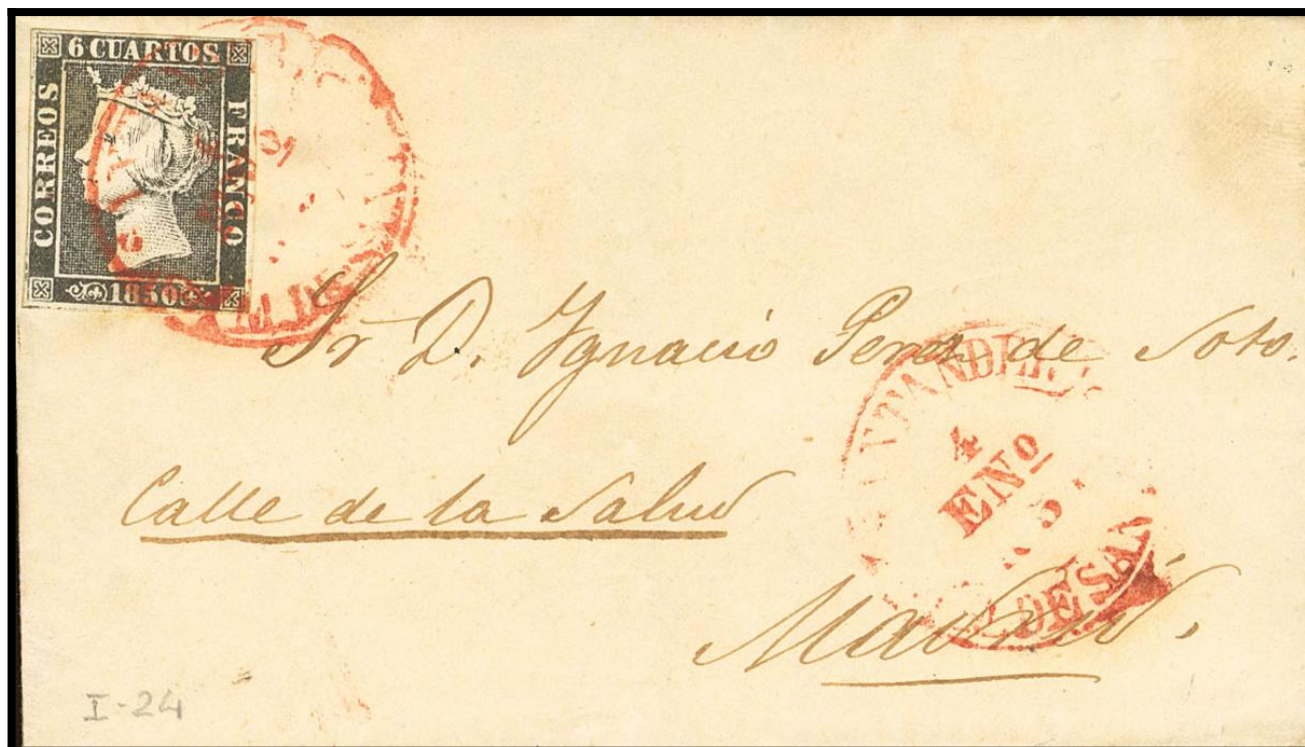 6 CUARTOS
CORREOS
FRANCO
1850
Sr D. Ygnacio Perez de Soto.
Calle de la Salud
Madrid.
4
ENº
DE SAN
I-24